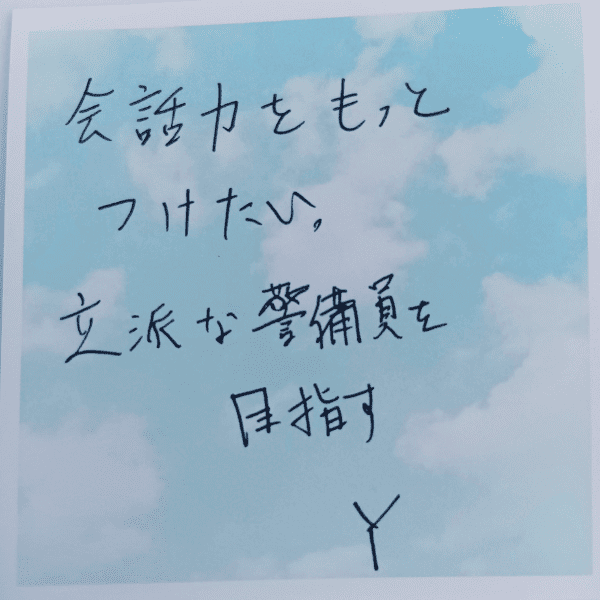 会話力をもっと
つけたい。
立派な警備員を
目指す
Y